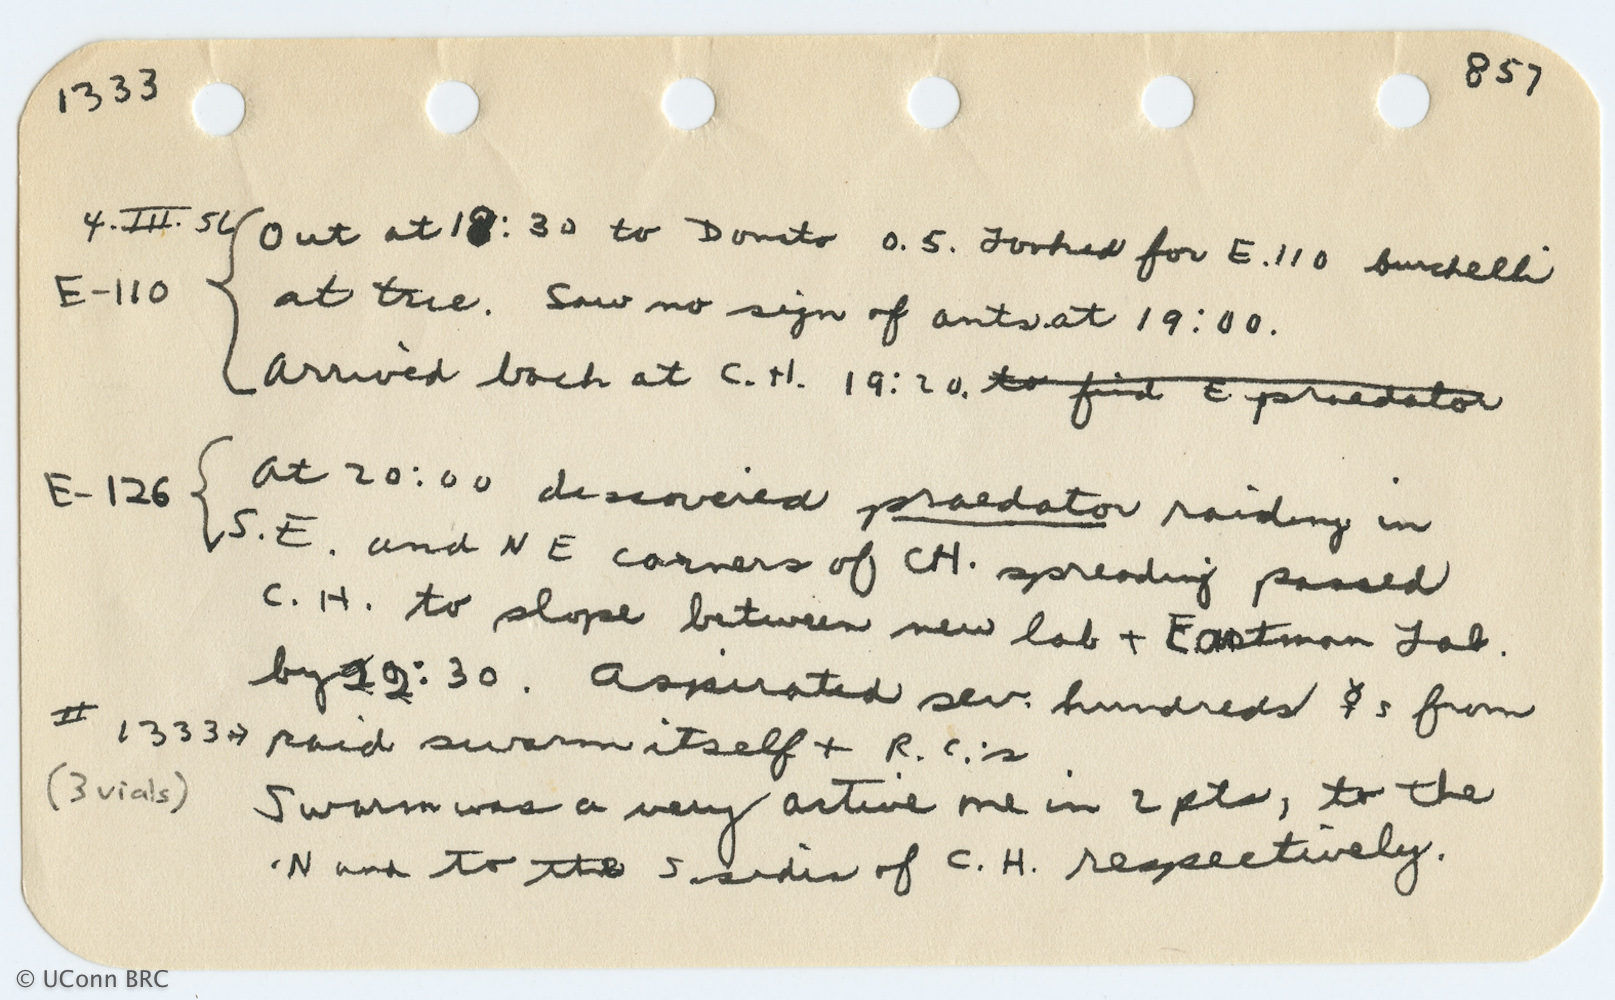 1333 857
4.III.56 Out at 18:30 to Donato 0.5. Looked for E.110 burchelli
E-110 at tree. Saw no sign of ants at 19:00.
Arrived back at C.H. 19:20. to find E praedator
E-126 At 20:00 discovered praedator raiding in
S.E. and NE corners of CH. spreading passed
C.H. to slope between new lab + Eastman Lab.
by 22:30. Aspirated sev. hundreds ☿s from
# 1333→ raid swarm itself + R.C.'s
(3 vials) Swarm was a very active one in 2 pts, to the
N and to the S. sides of C.H. respectively.
© UConn BRC